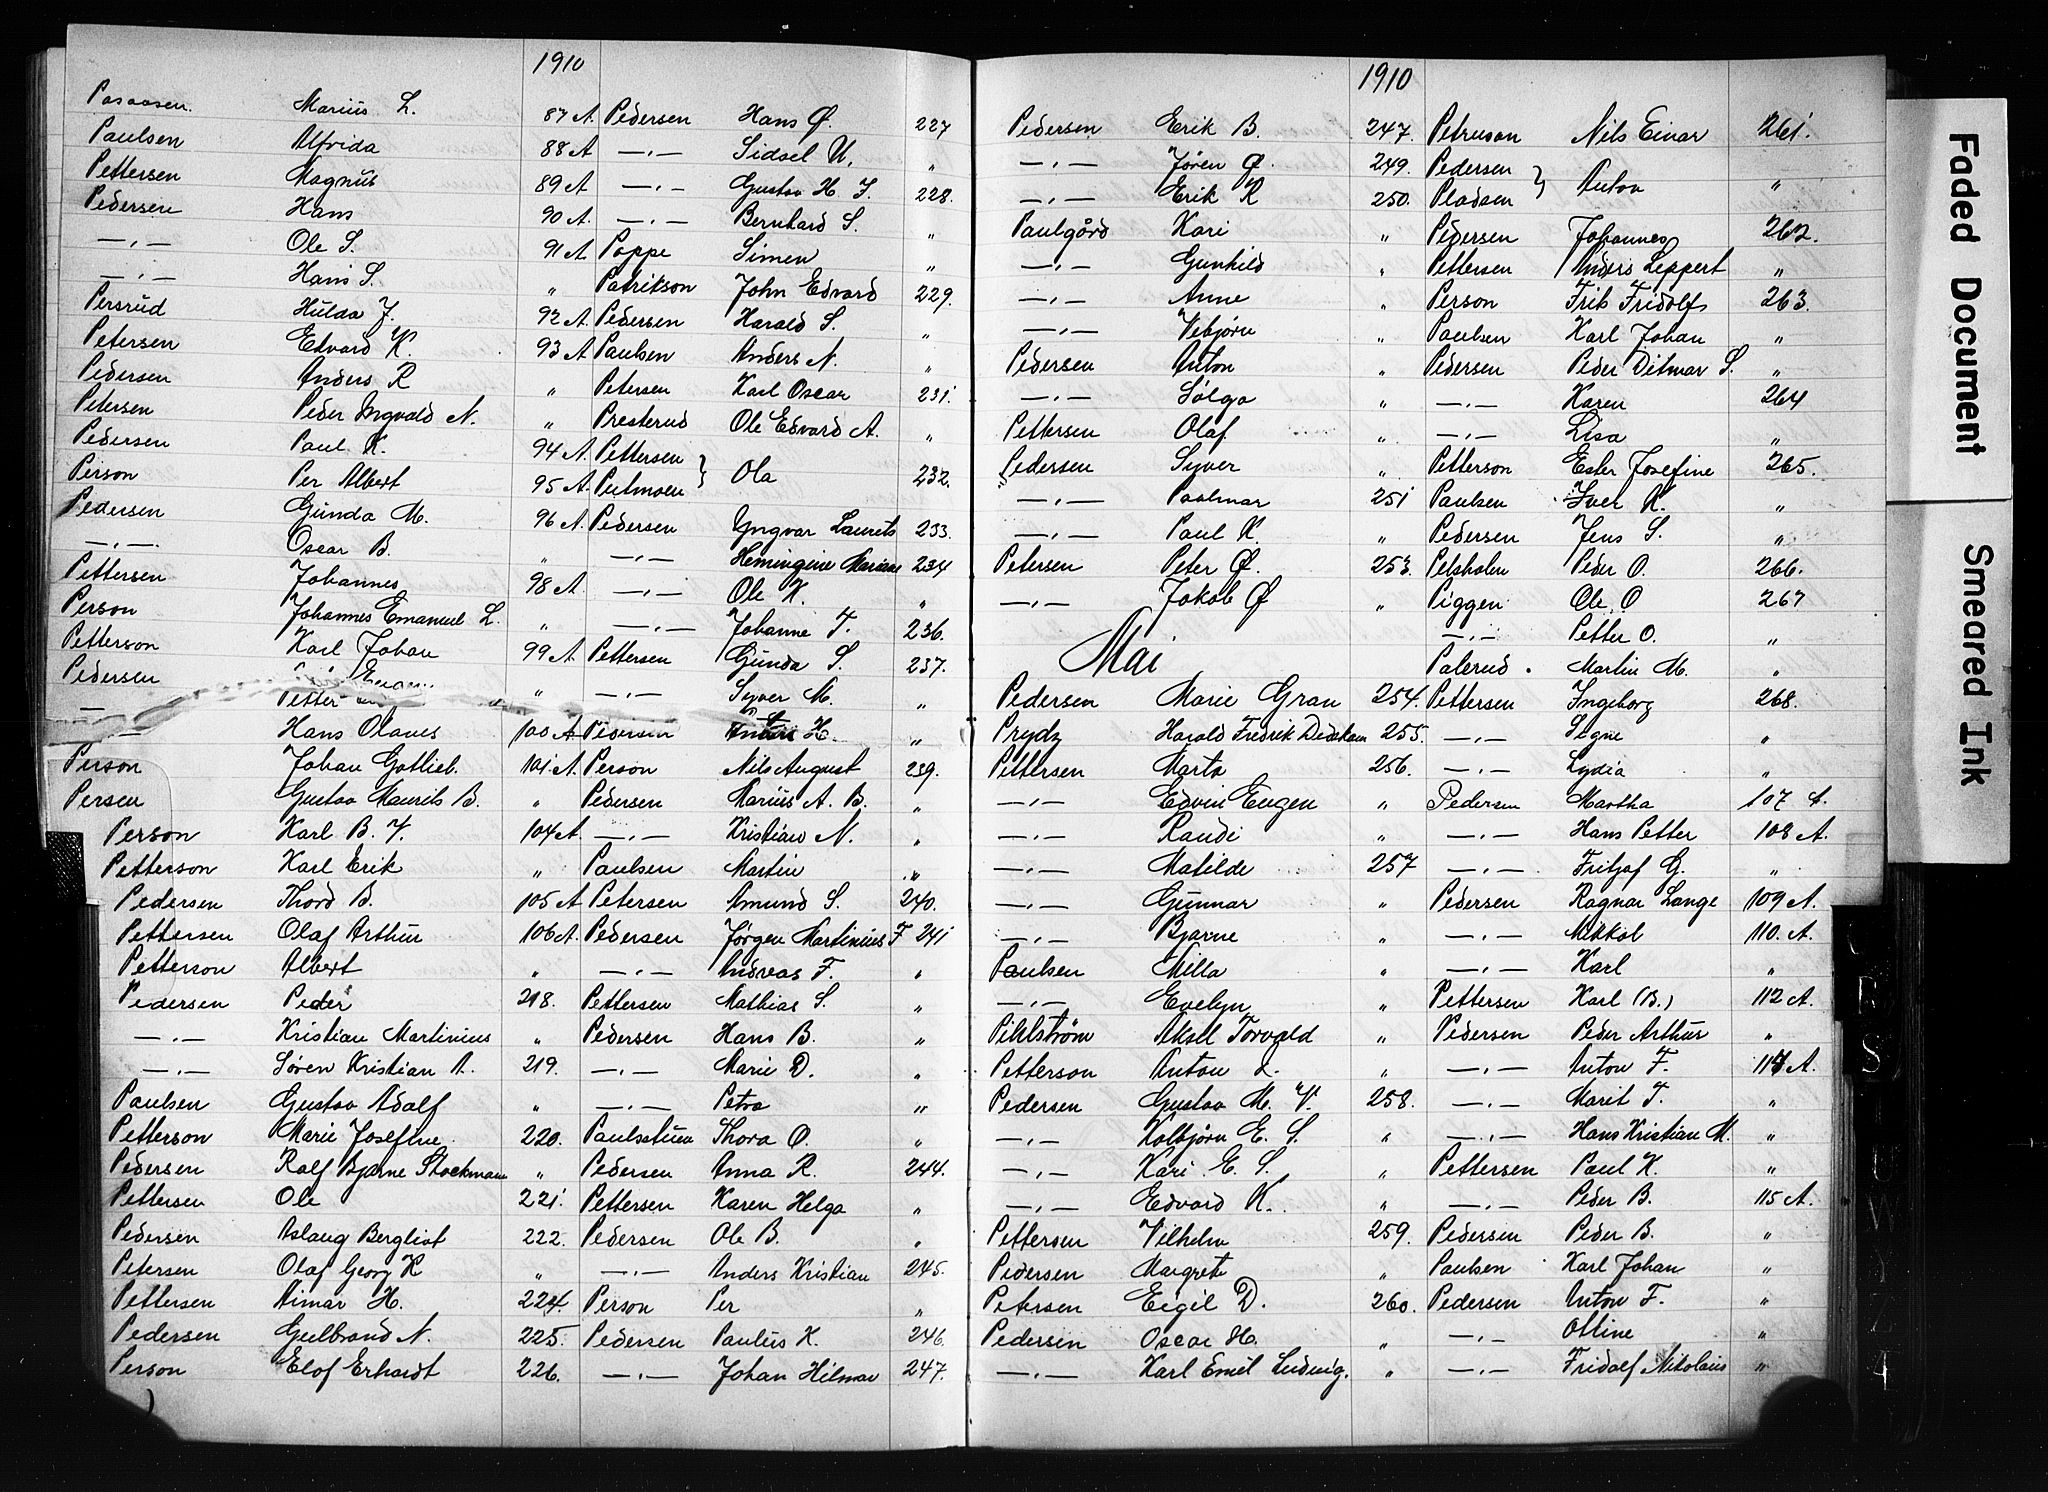 1910
Paraasen. Marius L. 87 A.
Paulsen Alfrida 88 A
Pettersen Magnus 89 A
Pedersen Hans 90 A.
—„— Ole S. 91 A
—„— Hans S. „
Persrud Hulda J. 92 A.
Petersen Edvard K. 93 A
Pedersen Anders R „
Petersen Peder Ingvald N. „
Pedersen Paul K. 94 A.
Person Per Albert 95 A.
Pedersen Gunda M. 96 A.
—„— Oscar B. „
Pettersen Johannes 98 A
Person Johannes Emanuel L. „
Petterson Karl Johan 99 A
Pedersen
— Petter „
Hans Olaves 100 A
Person Johan Gotlieb. 101 A.
Persen Gustav Maurits B. „
Person Karl B. V. 104 A.
Petterson Karl Erik „
Pedersen Thord B. 105 A
Pettersen Olaf Arthur 106 A.
Petterson Albert „
Pedersen Peder 218.
—„— Kristian Martinius „
—„— Søren Kristian A. 219.
Paulsen Gustav Adolf „
Petterson Marie Josefine. 220.
Pedersen Rolf Bjarne Stockmann „
Pettersen Ole 221.
Pedersen Aslaug Bergliot 222.
Petersen Olaf Georg K „
Pettersen Aimar H. 224.
Pedersen Gulbrand N. 225.
Person Elof Erhardt 226.
Pedersen Hans Ø. 227
—„— Sidsel U, „
—„— Gustav H. J. 228.
—„— Bernhard S. „
Poppe Simen „
Patrikson John Edvard 229.
Pedersen Harald S. „
Paulsen Anders N. „
Petersen Karl Oscar 231.
Presterud Ole Edvard A. „
Pettersen } Ola 232.
Putmoen }
Pedersen Yngvar Laurits 233.
—„— Hemingine Mariane 234
—„— Ole K. „
—„— Johanne T. 236.
Pettersen Gunda S. 237.
—„— Syver M. „
Pedersen H. „
Person Nils August 239.
Pedersen Marius A. B. „
—„— Kristian N. „
Paulsen Martin „
Petersen Amund S. 240.
Pedersen Jørgen Martinius F 241
—„— Andreas F. „
Pettersen Mathias S. „
Pedersen Hans B. „
—„— Marie D. „
—„— Petra „
Paulsstuen Thora O. „
Pedersen Anna R. 244.
Pettersen Karen Helga „
Pedersen Ole B. „
—„— Anders Kristian 245.
Person Per „
Pedersen Paulus K. 246.
—„— Johan Hilmar 247.
1910
Pedersen Erik B. 247.
—„— Jøren Ø. 249.
—„— Erik K 250.
Paulgård Kari „
—„— Gunhild „
—„— Anne „
—„— Vebjørn „
Pedersen Anton „
—„— Solga „
Pettersen Olaf „
Pedersen Syver „
—„— Paalmar 251
—„— Paul K. „
Petersen Peter Ø. 253.
—„— Jakob Ø „
Mai
Pedersen Marie Gran 254.
Prydz Harald Fredrik Didekam 255.
Pettersen Marta 256.
—„— Edvin Eugen „
—„— Randi „
—„— Matilde 257
—„— Gunnar „
—„— Bjarne „
Paulsen Milla „
—„— Evelyn „
Pihlstrøm Aksel Torvald „
Petterson Anton L. „
Pedersen Gustav M. V. 258.
—„— Kolbjørn E. S. „
—„— Kari E. S. „
—„— Edvard K. „
Pettersen Vilhelm 259.
Pedersen Margrete „
Petersen Eigil D. 260.
Pedersen Oscar H. „
—„— Karl Emil Ludvig. „
Petruson Nils Einar 261.
Pedersen } Anton „
Pladsen }
Pedersen Johannes 262.
Pettersen Anders Leppert „
Person Frik Fridolf 263.
Paulsen Karl Johan „
Pedersen Peder Ditmar S. „
—„— Karen 264
—„— Lisa „
Petterson Ester Josefine 265.
Paulsen Iver K. „
Pedersen Jens S. „
Petsholen Peder O. 266.
Piggen Ole O 267
—„— Petter O. „
Palerud. Martin M. „
Pettersen Ingeborg 268.
—„— Signe „
—„— Lydia „
Pedersen Martha 107 A.
—„— Hans Petter 108 A.
—„— Fritjof G. „
Pedersen Ragnar Lange 109 A.
—„— Mikkal 110. A.
—„— Karl „
Pettersen Karl (B.) 112 A.
Pedersen Peder Arthur „
—„— Anton F. 114 A.
—„— Marit T. „
—„— Hans Kristian M. „
Pettersen Paul K. „
—„— Peder B. 115 A.
Pedersen Peder B. „
Paulsen Karl Johan „
Pedersen Anton F. „
—„— Ottine „
—„— Fridolf Nikolaus „
Faded Document
Smeared Ink